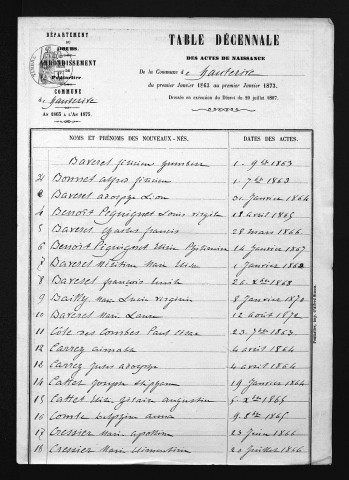 DÉPARTEMENT
du DOUBS
ARRONDISSEMENT
DE
Pontarlier
COMMUNE
d'Hauterive
AN 1863 A L'AN 1873.
TABLE DÉCENNALE
DES ACTES DE NAISSANCE
De la Commune d'Hauterive
du premier Janvier 1863 au premier Janvier 1873.
Dressée en exécution du Décret du 20 juillet 1807.
NOMS ET PRÉNOMS DES NOUVEAUX-NÉS. DATES DES ACTES.
Baveret 1. 9bre 1863
2 Bonnet alfred 1. 7bre 1863
3 Baveret Léon 31 janvier 1864
4 Benoit Péquignet Louis virgile 18 août 1865
5 Baveret francis 28 mars 1866
6 Benoit Péquignet 14 janvier 1867
7 Baveret Marie 1 janvier 1868
8 Baveret françois Emile 26 Xbre 1868
9 Bailly Marie Lucie virginie 8 Janvier 1872
10 Baveret Marie Laure 12 août 1872
11 Côte des Combes Paul 23 7bre 1863
12 Carrez aimable 4 avril 1864
13 Carrez jules adolphe 4 avril 1864
14 Cattet joseph 19 janvier 1864
15 Cattet augustin 6 Xbre 1865
16 Comte Delphine anna 9. 8bre 1865
17 Cressier Marie apolline 23 juin 1866
18 Cressier Marie Clémentine 20 juillet 1866